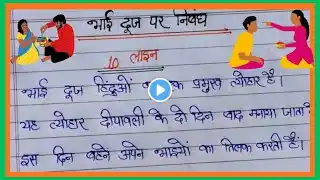 भाई दूज पर निबंध
10 लाइन
भाई दूज हिंदुओं का एक प्रमुख त्योहार है।
यह त्योहार दीपावली के दो दिन बाद मनाया जाता
इस दिन बहनें अपने भाइयों का तिलक करती हैं।